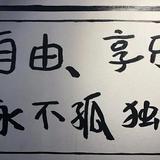 自由、享乐
永不孤独